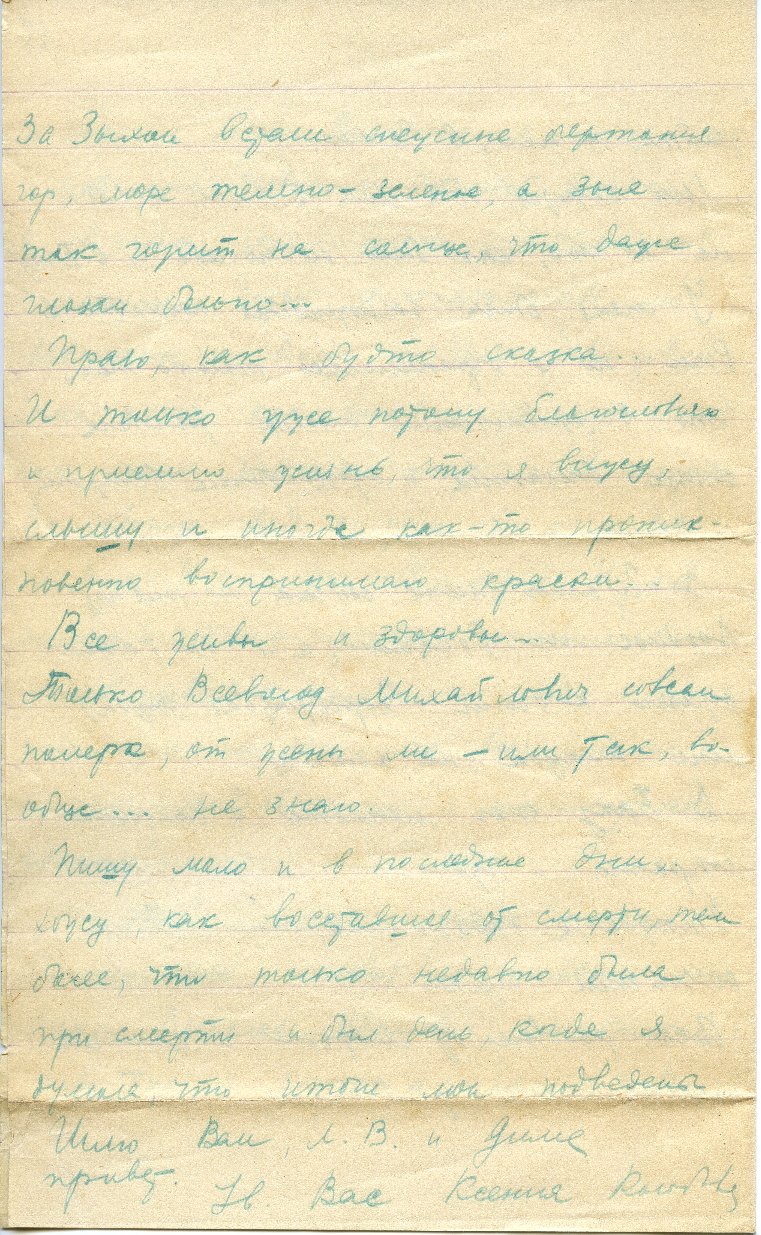 За Зыхом встали снежные очертания
гор, море темно-зеленое, а Зыхе
так горит на солнце, что даже
глазам больно...
Право, как будто сказка...
И только уже потому благословляю
и приемлю жизнь, что я вижу,
слышу и иногда как-то проник-
новенно воспринимаю краски...
Все живы и здоровы...
Только Всеволод Михайлович совсем
померк, от жены ли – или так, во-
обще... не знаю.
Пишу мало и в последние дни
хожу, как "воставшая от смерти, тем
более, что только недавно была
при смерти и был день, когда я
думала, что итоги мои подведены
Шлю Вам, Л. В. и Диме
привет.
Ув. Вас Ксения